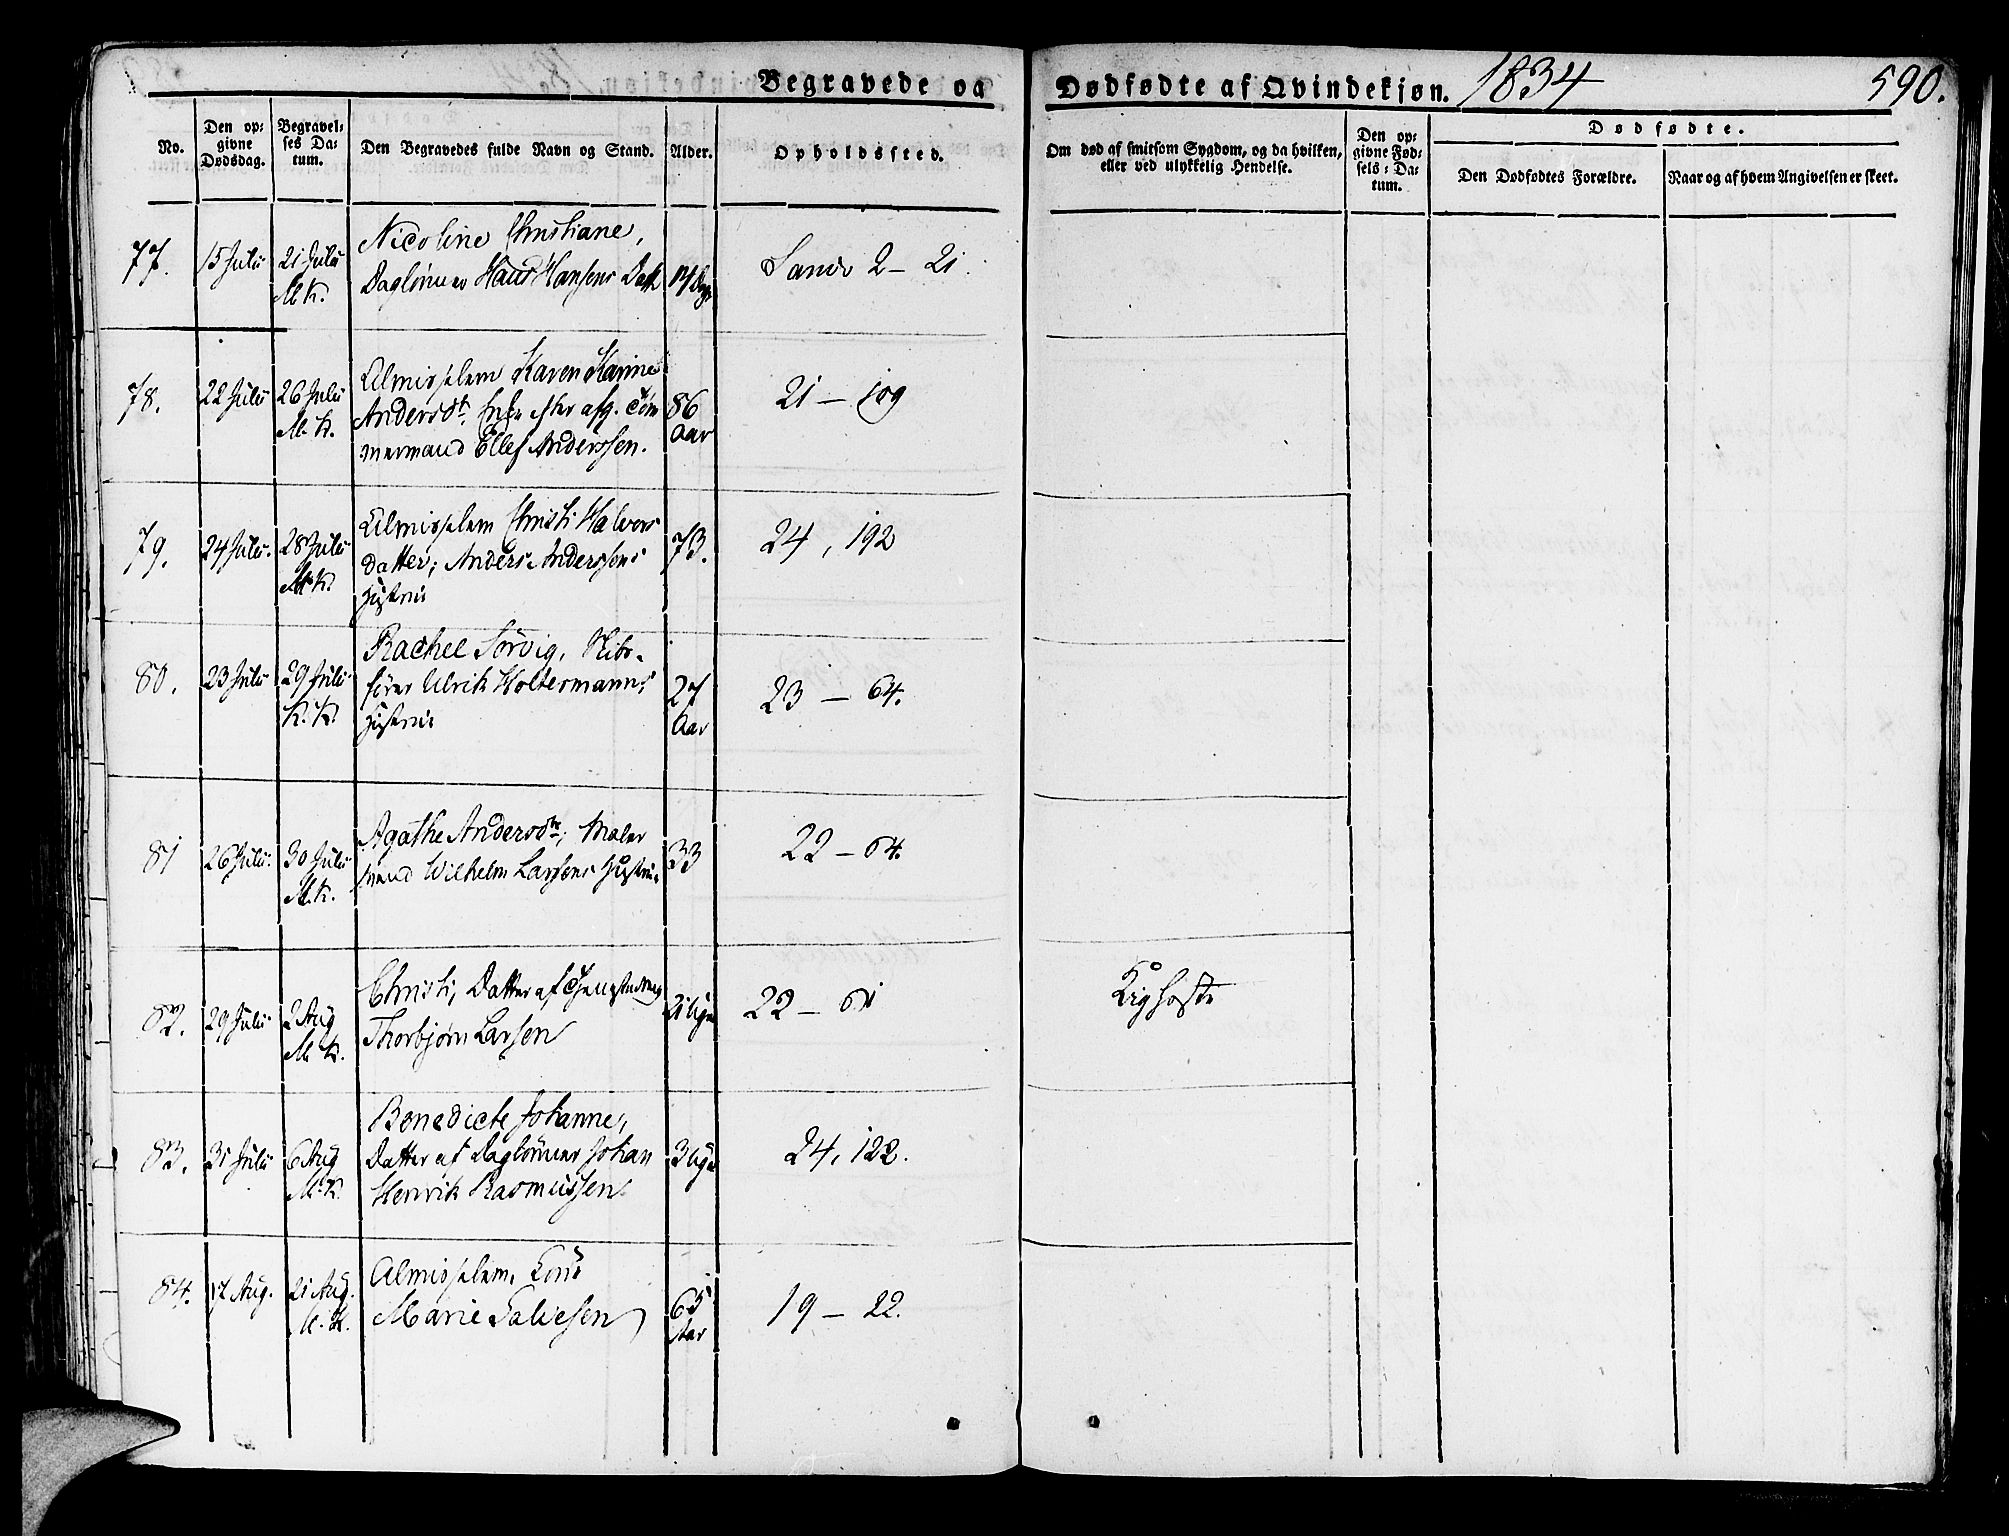 Begravede og Dødfødte af Qvindekjøn. 1834 590.
No.
Den op-
givne
Dødsdag.
Begravel-
ses Da-
tum.
Den Begravedes fulde Navn og Stand.
Alder.
Opholdssted.
Om død af smitsom Sygdom, og da hvilken,
eller ved ulykkelig Hendelse.
Den op-
givne Fød-
sels-Da-
tum.
Dødfødte.
Den Dødfødtes Forældre.
Naar og af hvem Angivelsen er skeet.
77. 15 Julii 21 Julii M.K.
Nicoline Christiane,
Daglønner Hans Hansens Datt
14 Dage
2 - 21.
78. 22 Julii 26 Julii M.K.
Almisselem Karen Marine
Andersdt. Enke efter afg. Tøm
mermand Ellef Anderssen.
86 Aar
21 - 109
79. 24 Julii. 28 Julii M.K.
Almisselem Christi Halvors
datter; Anders Anderssens
Hustrue
73.
24, 192
80. 23 Julii 29 Julii K.K.
Rachel Sørvig,
fører Ulrik Holtermanns
Hustrue
27 Aar
23 - 64.
81 26 Julii. 30 Julii M.K.
Agathe Andersdtr; Maler
svend Wilhelm Larsens Hustrue
33
22 - 64.
82. 29 Julii 2 Aug M.K.
Christi, Datter af
Thorbjørn Larsen
21 Uger
22 - 61
Kighoste
83. 31 Julii 6 Aug M.K.
Benedicte Johanne,
Datter af Daglønner Johan
Henrik Rasmussen
3 Uger
24, 122.
84. 17 Aug. 21 Aug. M.K.
Almisselem,
Marie
65 Aar
19 - 22.